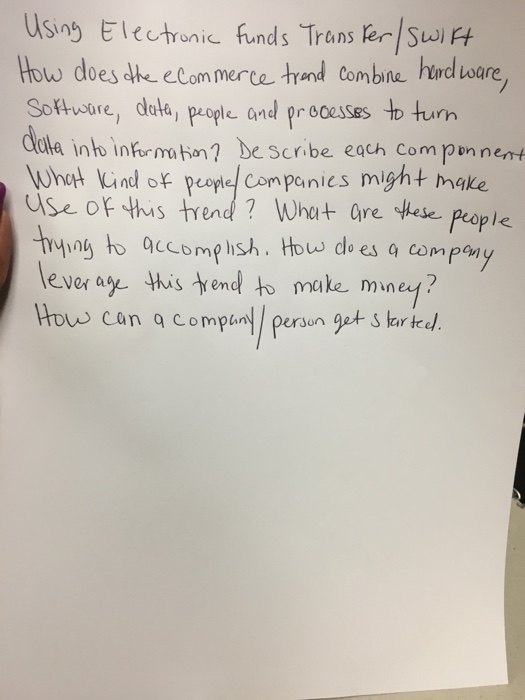 Using Electronic Funds Transfer/SWIFt
How does the eCommerce trend combine hardware,
Software, data, people and processes to turn
data into information? Describe each componnent
What kind of people/companies might make
Use of this trend? What are these people
trying to accomplish. How does a company
leverage this trend to make miney?
How can a company/person get started.